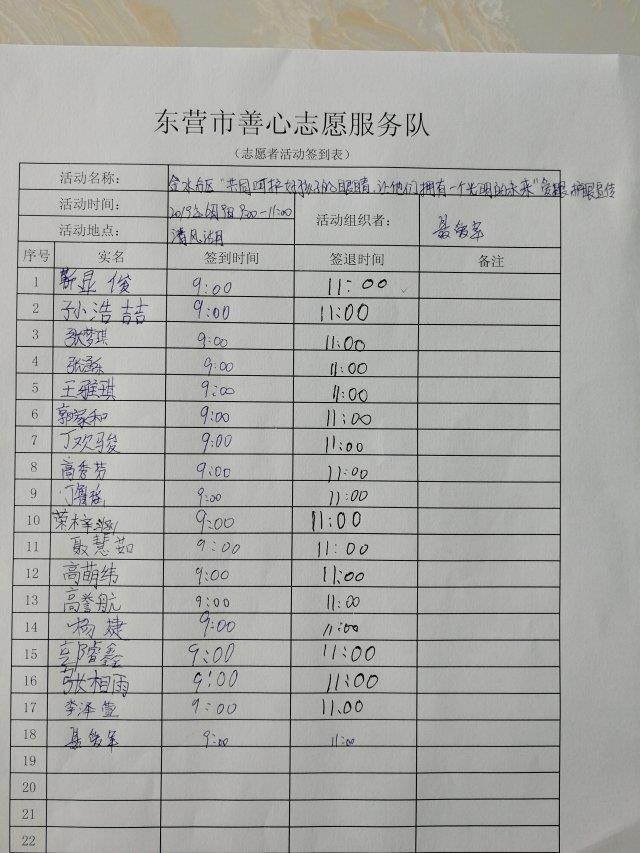 东营市善心志愿服务队
（志愿者活动签到表）
活动名称： 金水台区“共同呵护好孩子的眼睛，让他们拥有一个光明的未来”爱眼护眼宣传
活动时间： 2019年6月9日 9:00-11:00 活动组织者：
活动地点： 清风湖
序号 实名 签到时间 签退时间 备注
1 靳显俊 9:00 11:00
2 孙浩喆 9:00 11:00
3 张梦琪 9:00 11:00
4 9:00 11:00
5 王雅琪 9:00 11:00
6 郭家和 9:00 11:00
7 丁欢骏 9:00 11:00
8 高秀芬 9:00 11:00
9 9:00 11:00
10 荣梓 9:00 11:00
11 聂慧茹 9:00 11:00
12 高萌纬 9:00 11:00
13 高誉航 9:00 11:00
14 杨婕 9:00 11:00
15 郭睿鑫 9:00 11:00
16 张相雨 9:00 11:00
17 李泽萱 9:00 11.00
18 9:00 11:00
19
20
21
22